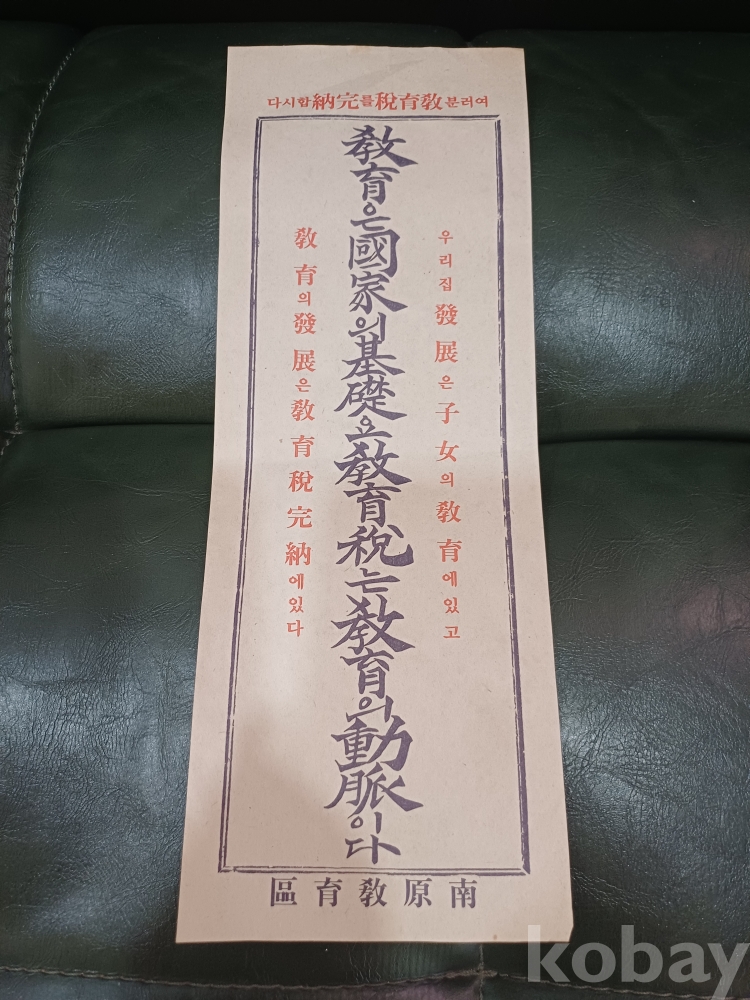 여러분敎育稅를完納합시다
우리집發展은子女의敎育에있고
敎育은國家의基礎요敎育稅는敎育의動脈이다
敎育의發展은敎育稅完納에있다
南原敎育區
kobay